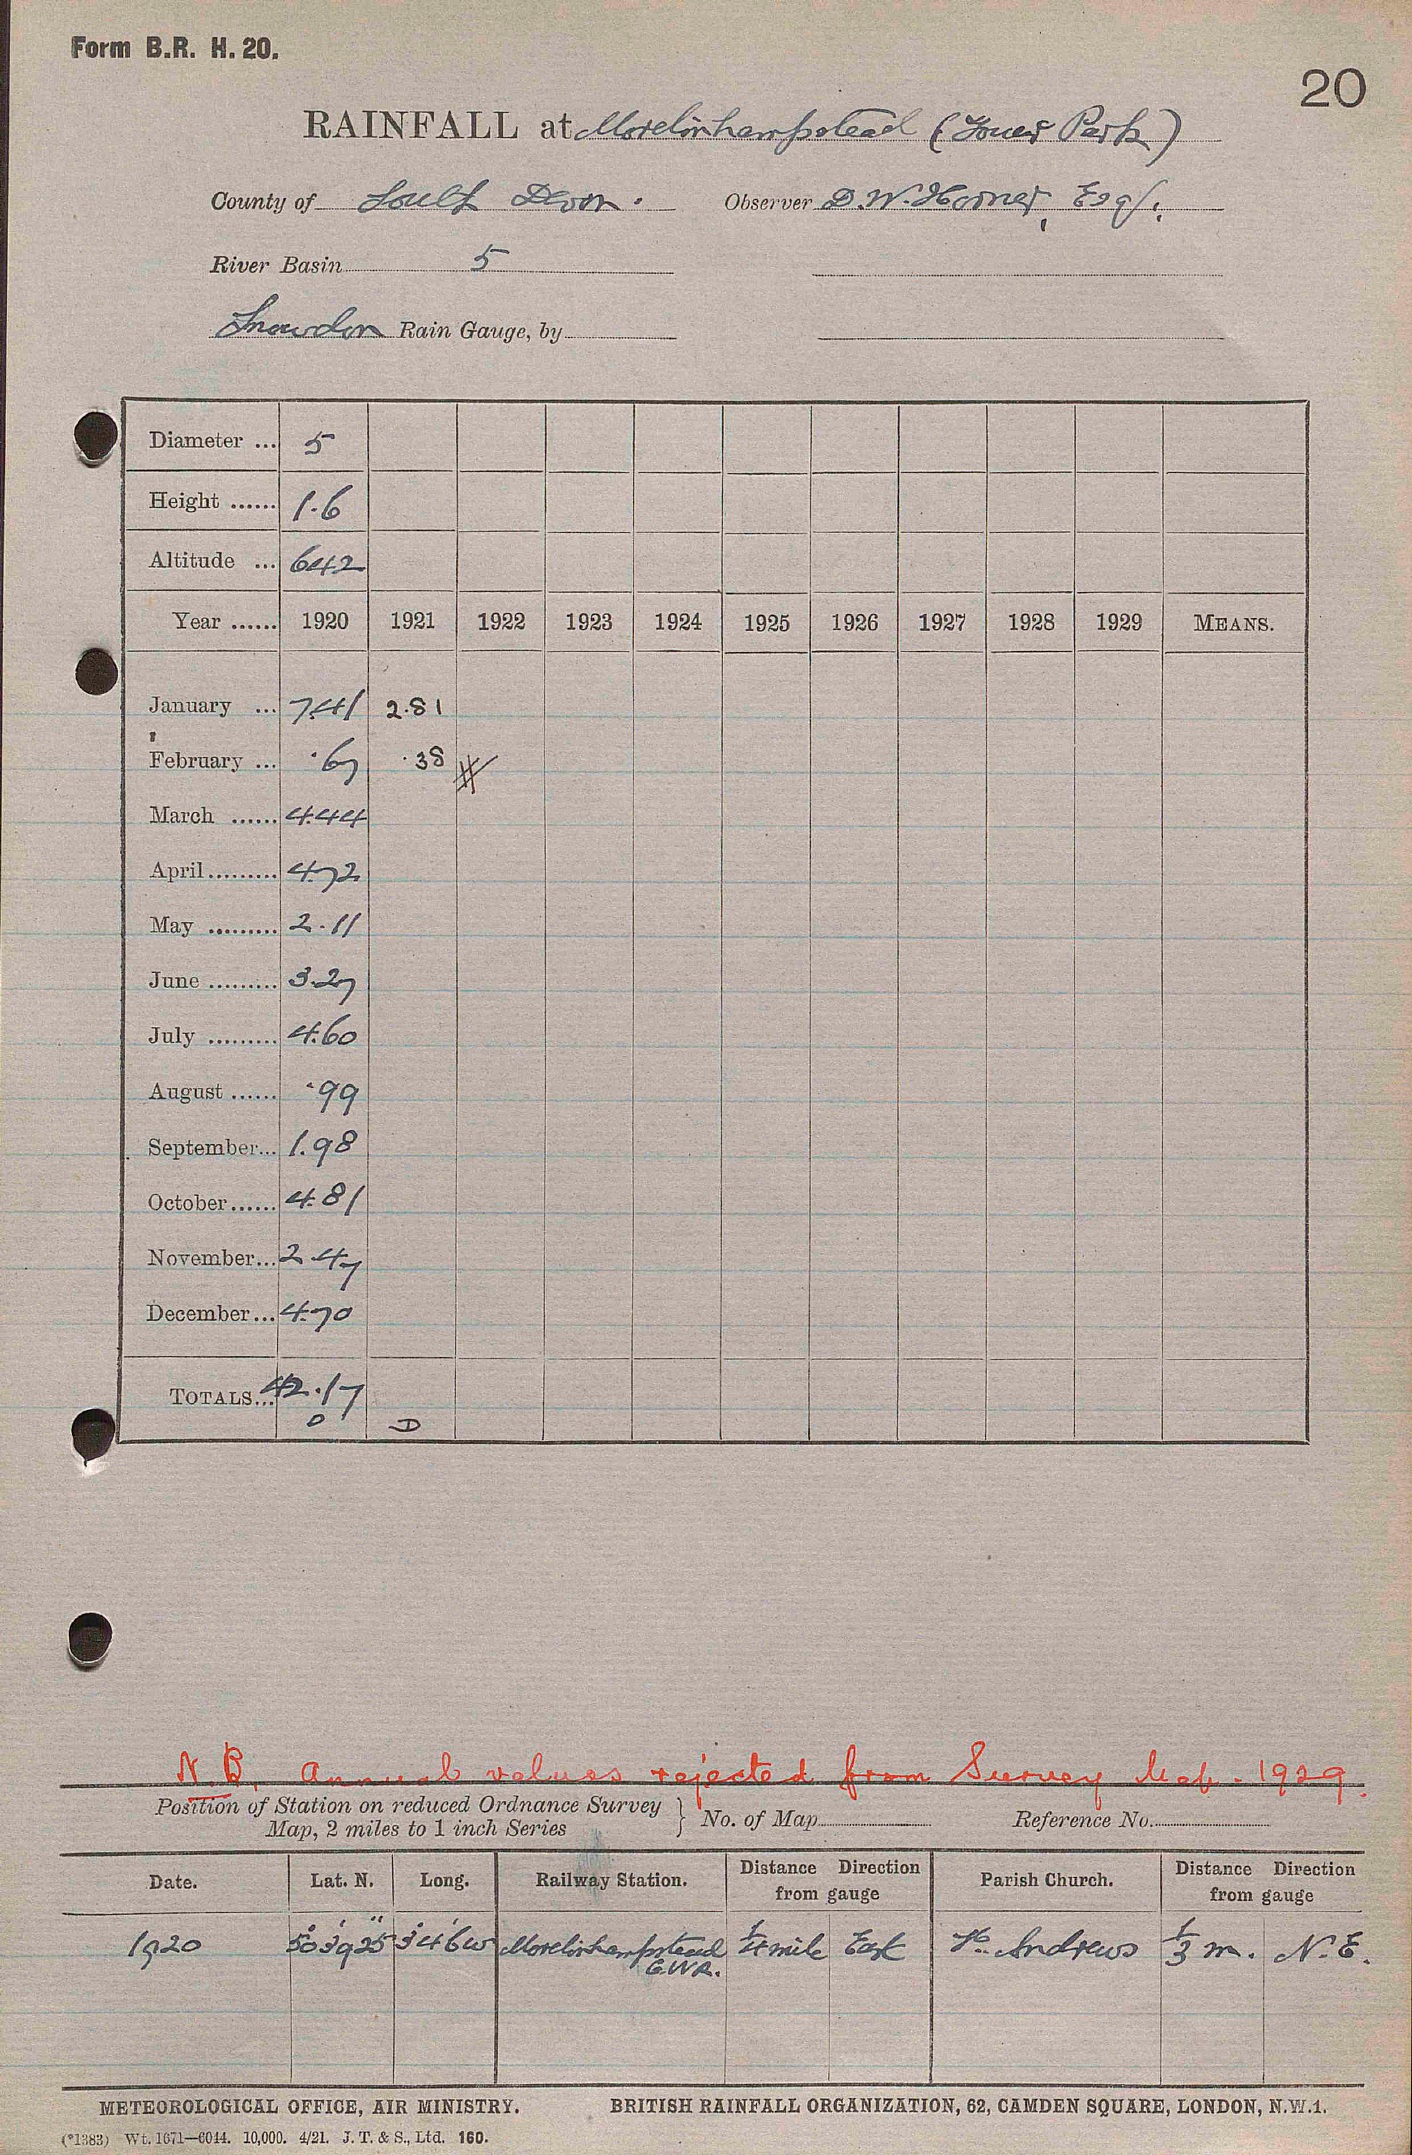 Form B.R. H. 20.
20
RAINFALL at Moretonhampstead (Tower Park)
County of South Devon. Observer D.W. Horner, Esq.
River Basin 5
Snowdon Rain Gauge, by
Diameter ... 5
Height ...... 1.6
Altitude ... 642
Year ...... 1920 1921 1922 1923 1924 1925 1926 1927 1928 1929 MEANS.
January ... 7.41 2.81
February ... .67 .38
March ...... 4.44
April......... 4.72
May ......... 2.11
June ......... 3.27
July ......... 4.60
August ...... .99
September... 1.98
October...... 4.81
November... 2.47
December... 4.70
TOTALS... 42.17
D D
N.B. Annual values rejected from Survey Map. 1929.
Position of Station on reduced Ordnance Survey
Map, 2 miles to 1 inch Series } No. of Map Reference No.
Date. Lat. N. Long. Railway Station. Distance Direction from gauge Parish Church. Distance Direction from gauge
1920 50° 39' 25" 3° 46' W Moretonhampstead G.W.R. 1/4 mile East St. Andrews 1/3 m. N.E.
METEOROLOGICAL OFFICE, AIR MINISTRY. BRITISH RAINFALL ORGANIZATION, 62, CAMDEN SQUARE, LONDON, N.W.1.
(*1383) Wt. 1671—6044. 10,000. 4/21. J. T. & S., Ltd. 160.